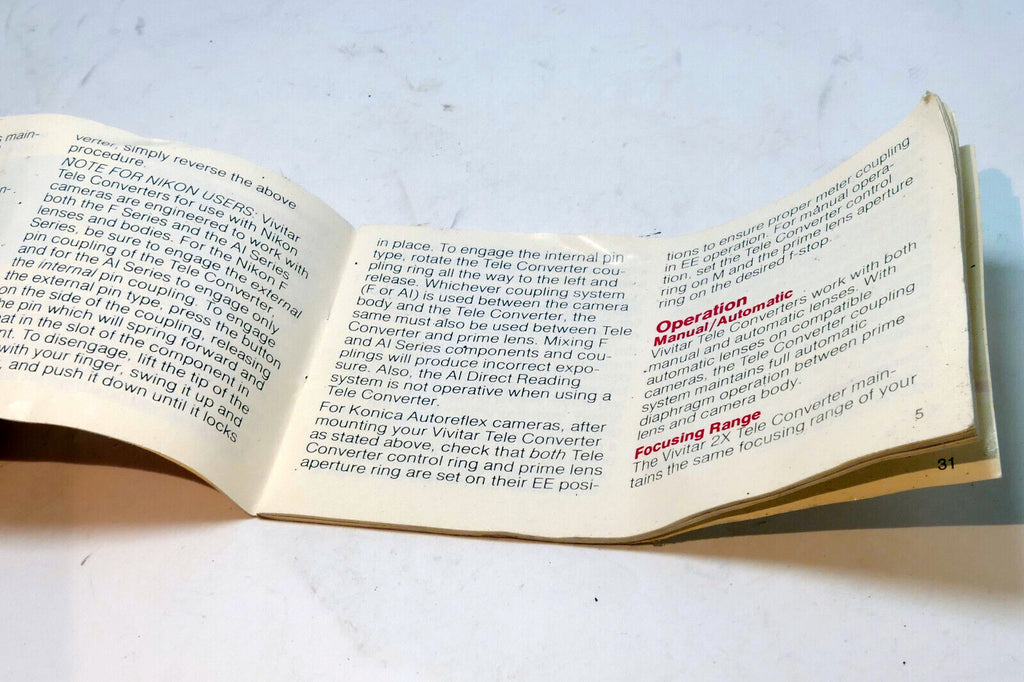 s main-
n-
verter, simply reverse the above
procedure.
NOTE FOR NIKON USERS: Vivitar
Tele Converters for use with Nikon
cameras are engineered to work with
both the F Series and the AI Series
lenses and bodies. For the Nikon F
Series, be sure to engage the external
pin coupling of the Tele Converter,
and for the AI Series to engage only
the internal pin coupling. To engage
the external pin type, press the button
on the side of the coupling, releasing
he pin which will spring forward and
at in the slot of the component in
nt. To disengage, lift the tip of the
with your finger, swing it up and
, and push it down until it locks
in place. To engage the internal pin
type, rotate the Tele Converter cou-
pling ring all the way to the left and
release. Whichever coupling system
(F or AI) is used between the camera
body and the Tele Converter, the
same must also be used between Tele
Converter and prime lens. Mixing F
and AI Series components and cou-
plings will produce incorrect expo-
sure. Also, the AI Direct Reading
system is not operative when using a
Tele Converter.
For Konica Autoreflex cameras, after
mounting your Vivitar Tele Converter
as stated above, check that both Tele
Converter control ring and prime lens
aperture ring are set on their EE posi-
tions to ensure proper meter coupling
in EE operation. For manual opera-
tion, set the Tele Converter control
ring on M and the prime lens aperture
ring on the desired f-stop.
Operation
Manual/Automatic
Vivitar Tele Converters work with both
manual and automatic lenses. With
automatic lenses on compatible
cameras, the Tele Converter coupling
system maintains full automatic
diaphragm operation between prime
lens and camera body.
Focusing Range
The Vivitar 2X Tele Converter main-
tains the same focusing range of your
5
31